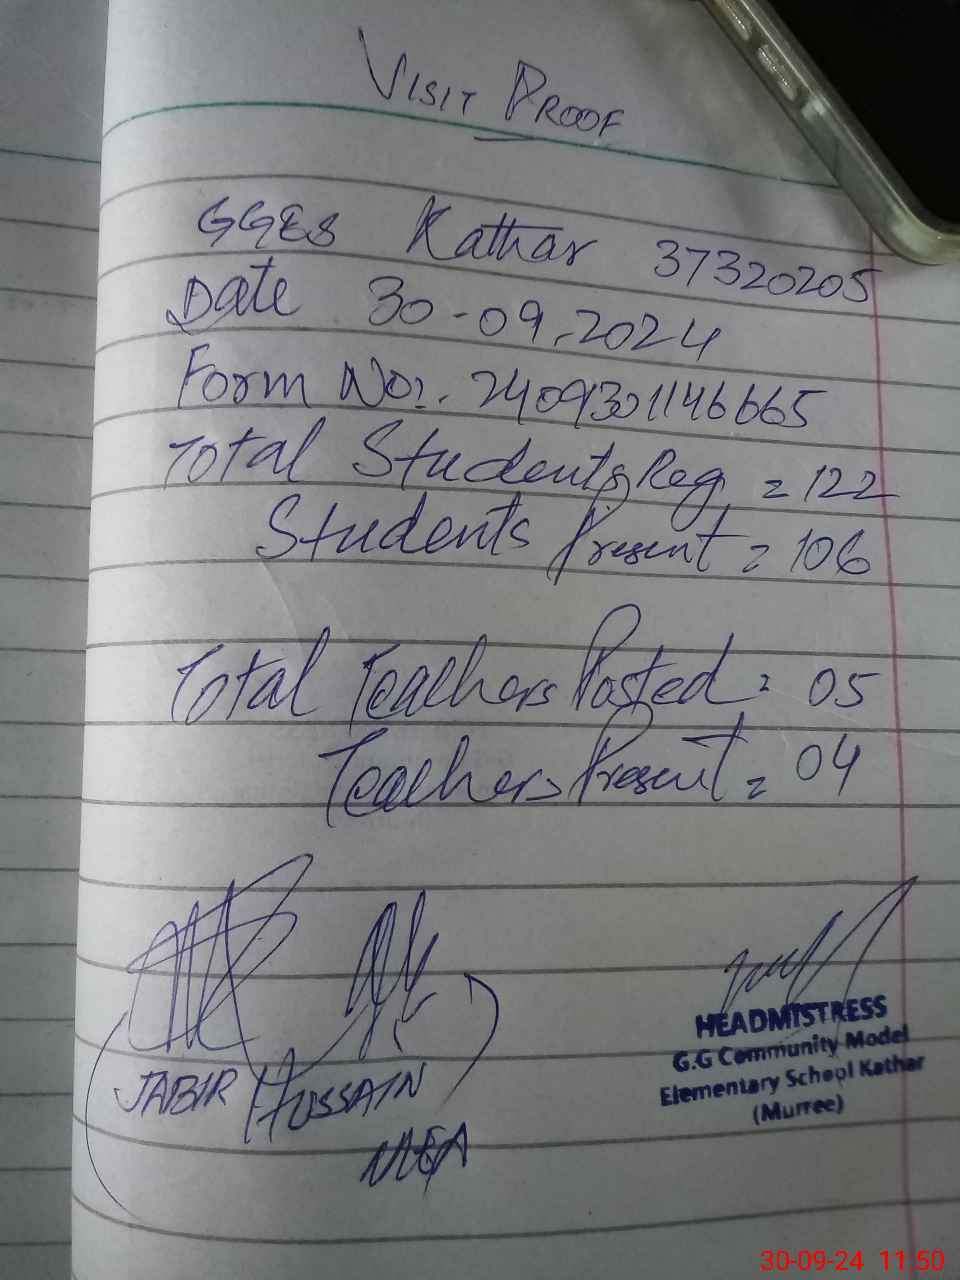 VISIT PROOF
GGES Kathar 37320205
Date 30-09-2024
Form No:. 2409301146665
Total Students Reg = 122
Students Present = 106
Total Teachers Posted = 05
Teachers Present = 04
JABIR HUSSAIN
MEA
HEADMISTRESS
G.G Community Model
Elementary School Kathar
(Murree)
30-09-24 11:50